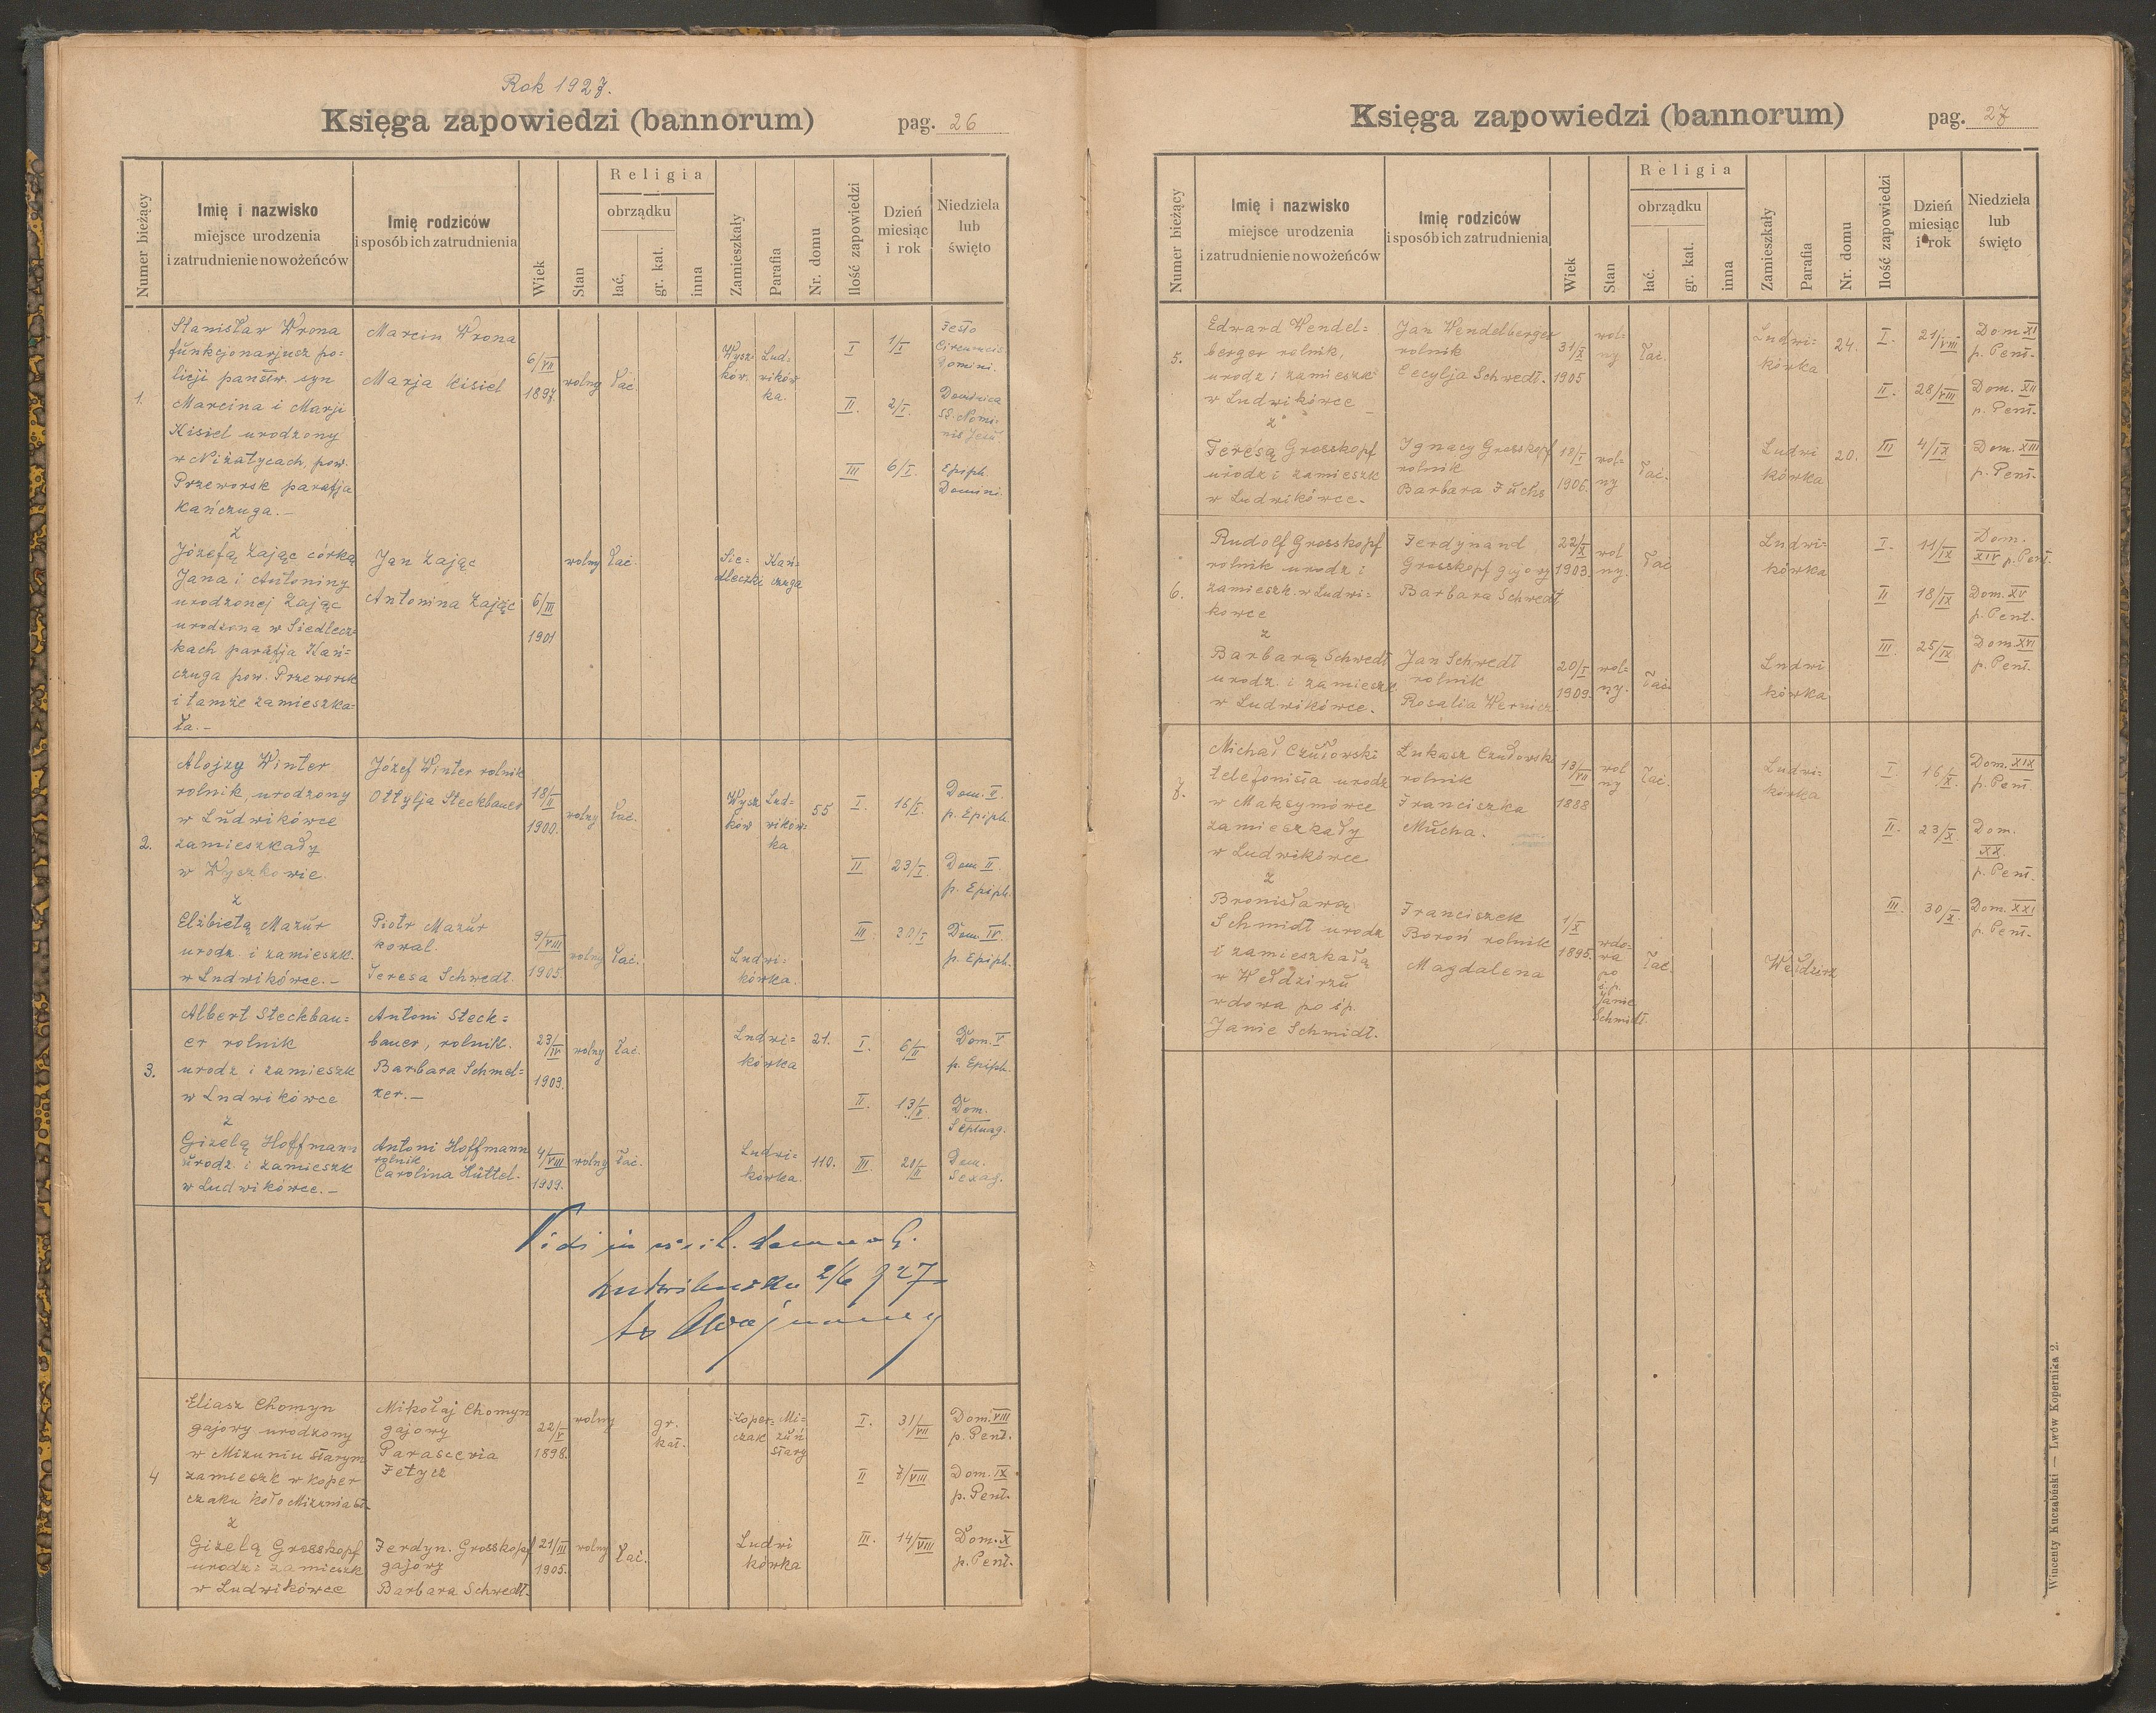 Rok 1927.
Księga zapowiedzi (bannorum)
pag. 26
Numer bieżący
Imię i nazwisko
miejsce urodzenia
i zatrudnienie nowożeńców
Imię rodziców
i sposób ich zatrudnienia
Wiek
Stan
Religia
obrządku
łać.
gr. kat.
inna
Zamieszkały
Parafia
Nr. domu
Ilość zapowiedzi
Dzień
miesiąc
i rok
Niedziela
lub
święto
1.
Stanisław Wrona
funkcjonarjusz po=
licji państw. syn
Marcina i Marji
Kisiel urodzony
w Niżatycach, pow.
Przeworsk parafja
Kańczuga.-
z
Józefą Zając córką
Jana i Antoniny
urodzonej Zając
urodzona w Siedlecz=
kach parafja Kań=
czuga pow. Przeworsk
i tamże zamieszka=
ła.-
Marcin Wrona
Marja Kisiel
Jan Zając
Antonina Zając
6/VII
1897.
6/III
1901
wolny
wolny
łac.
łac.
Wysz
ków.
Lud=
wików
ka.
Sie=
dleczki
Kań=
czuga
I
1/I
Festo
Circumcis
Domini.
II.
2/I.
Dominica
SS. Nomi=
nis Jesu.
III
6/I.
Epiph.
Domini.
2.
Alojzy Winter
rolnik, urodzony
w Ludwikówce
zamieszkały
w Wyszkowie
z
Elżbietą Mazur
urodz. i zamieszk.
w Ludwikówce.-
Józef Winter rolnik
Ottylja Steckbauer
Piotr Mazur
kowal.
Teresa Schwedt.
18/II
1900.
9/VIII
1905.
wolny
wolny
łac.
łac.
Wysz
ków
Lud=
wików=
ka
55
Ludwi=
kówka.
I.
16/I.
Dom. II.
p. Epiph.
II
23/I
Dom II.
p. Epiph.
III.
30/I
Dom. IV.
p. Epiph.
3.
Albert Steckbau=
er rolnik
urodz. i zamieszk
w Ludwikówce
z
Gizelą Hoffmann
urodz. i zamieszk
w Ludwikówce.-
Antoni Steck=
bauer, rolnik.
Barbara Schmel=
zer.-
Antoni Hoffmann
rolnik
Carolina Hüttel.
23/IV
1903.
4/VIII
1909.
wolny
wolny
łac.
łac.
Ludwi=
kówka
21.
Ludwi=
kówka.
110.
I.
6/II
Dom. V
p. Epiph.
II.
13/II.
Dom.
Septuag.
III.
20/II
Dom.
Sexag.
Vidi in
2/6 927
4
Eliasz Chomyn
gajowy urodzony
w Mizuniu starym
zamieszk w Koper
czaku koło Mizunia
z
Gizelą Grosskopf
urodz i zamieszk
w Ludwikówce
Mikołaj Chomyn
gajowy
Parascevia
Fetycz
Ferdyn. Grosskopf
gajowy
Barbara Schwedt.
22/V
1898.
21/III
1905.
wolny
wolny
gr.
kat.
łac.
Koper=
czak
Mi=
zuń
stary
Ludwi
kówka
I.
31/VII
Dom. VIII
p. Pent.
II
7/VIII
Dom. IX
p. Pent.
III.
14/VIII
Dom. X
p. Pent.
Księga zapowiedzi (bannorum)
pag. 27
Numer bieżący
Imię i nazwisko
miejsce urodzenia
i zatrudnienie nowożeńców
Imię rodziców
i sposób ich zatrudnienia
Wiek
Stan
Religia
obrządku
łać.
gr. kat.
inna
Zamieszkały
Parafia
Nr. domu
Ilość zapowiedzi
Dzień
miesiąc
i rok
Niedziela
lub
święto
5.
Edward Wendel=
berger rolnik,
urodz i zamieszk
w Ludwikówce
z
Teresą Grosskopf
urodz i zamieszk
w Ludwikówce.
Jan Wendelberger
rolnik
Cecylja Schwedt.
Ignacy Grosskopf
rolnik
Barbara Fuchs
31/X
1905
18/I
1906.
wol=
ny
wol=
ny
łac.
łac.
Ludwi=
kówka
24.
Ludwi
kówka
20.
I.
21/VIII
Dom XI
p. Pent.
II.
28/VIII
Dom. XII
p. Pent.
III
4/IX
Dom. XIII
p. Pent.
6.
Rudolf Grosskopf
rolnik urodz i
zamieszk. w Ludwi=
kowce
z
Barbarą Schwedt
urodz. i zamieszk
w Ludwikówce.
Ferdynand
Grosskopf gajowy
Barbara Schwedt
Jan Schwedt
rolnik
Rosalia Wernicz
22/X
1903.
20/I
1909.
wol
ny.
wol=
ny.
łac
łac.
Ludwi=
kówka
Ludwi
kówka
I.
11/IX
Dom.
XIV p. Pent.
II
18/IX
Dom. XV
p. Pent.
III.
25/IX
Dom XVI
p. Pent.
7.
Michał Czułowski
telefonista urodz
w Maksymówce
zamieszkały
w Ludwikówce
z
Bronisławą
Schmidt urodz
i zamieszkałą
w Wełdzirzu
wdowa po śp.
Janie Schmidt.
Lukasz Czułowski
rolnik
Franciszka
Mucha.
Franciszek
Boroń rolnik
Magdalena
13/VII
1888
1/X
1895.
wol
ny
wdo=
wa
po
ś.p.
Janie
Schmidt.
łac
łac.
Ludwi=
kówka
Wełdzirz
I.
16/X.
Dom. XIX
p. Pent.
II.
23/X
Dom.
XX.
p. Pent.
III.
30/X.
Dom. XXI
p. Pent.
Wincenty Kuczabiński — Lwów Kopernika 2.